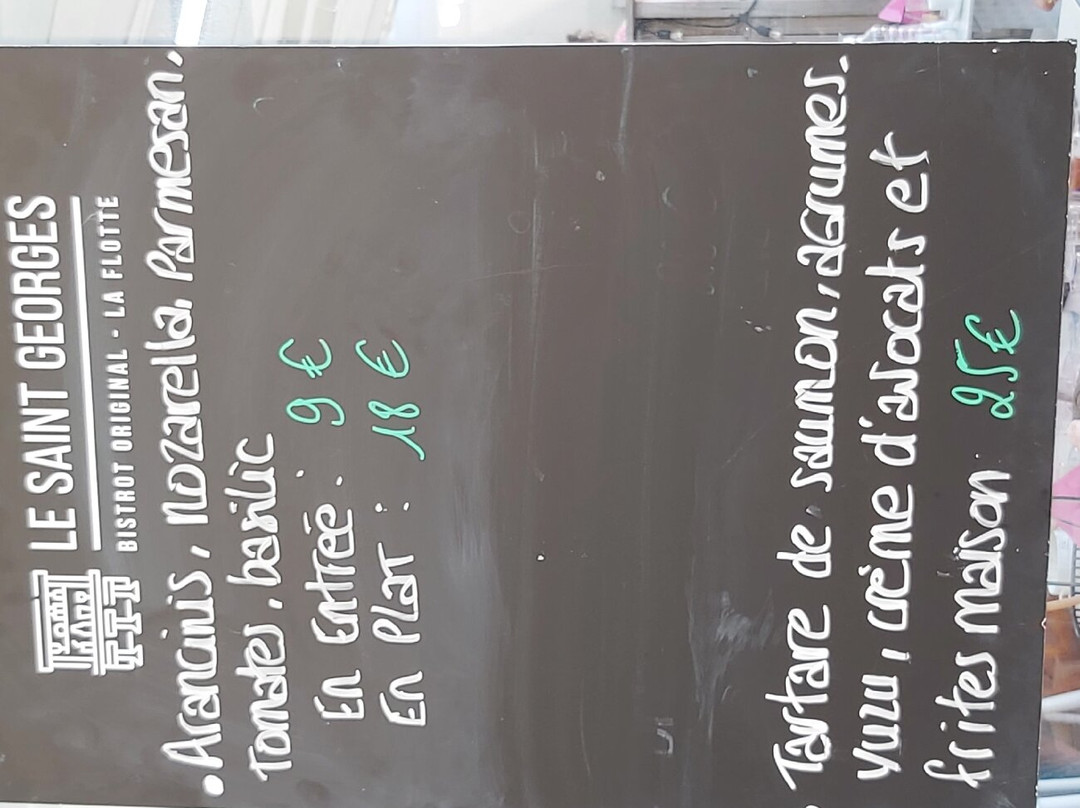 LE SAINT GEORGES
BISTROT ORIGINAL - LA FLOTTE
• Arancinis, mozarella, Parmesan,
Tomates, basilic
En Entrée : 9 €
En Plat : 18 €
• Tartare de saumon, agrumes.
yuzu, crème d'avocats et
frites maison 25€